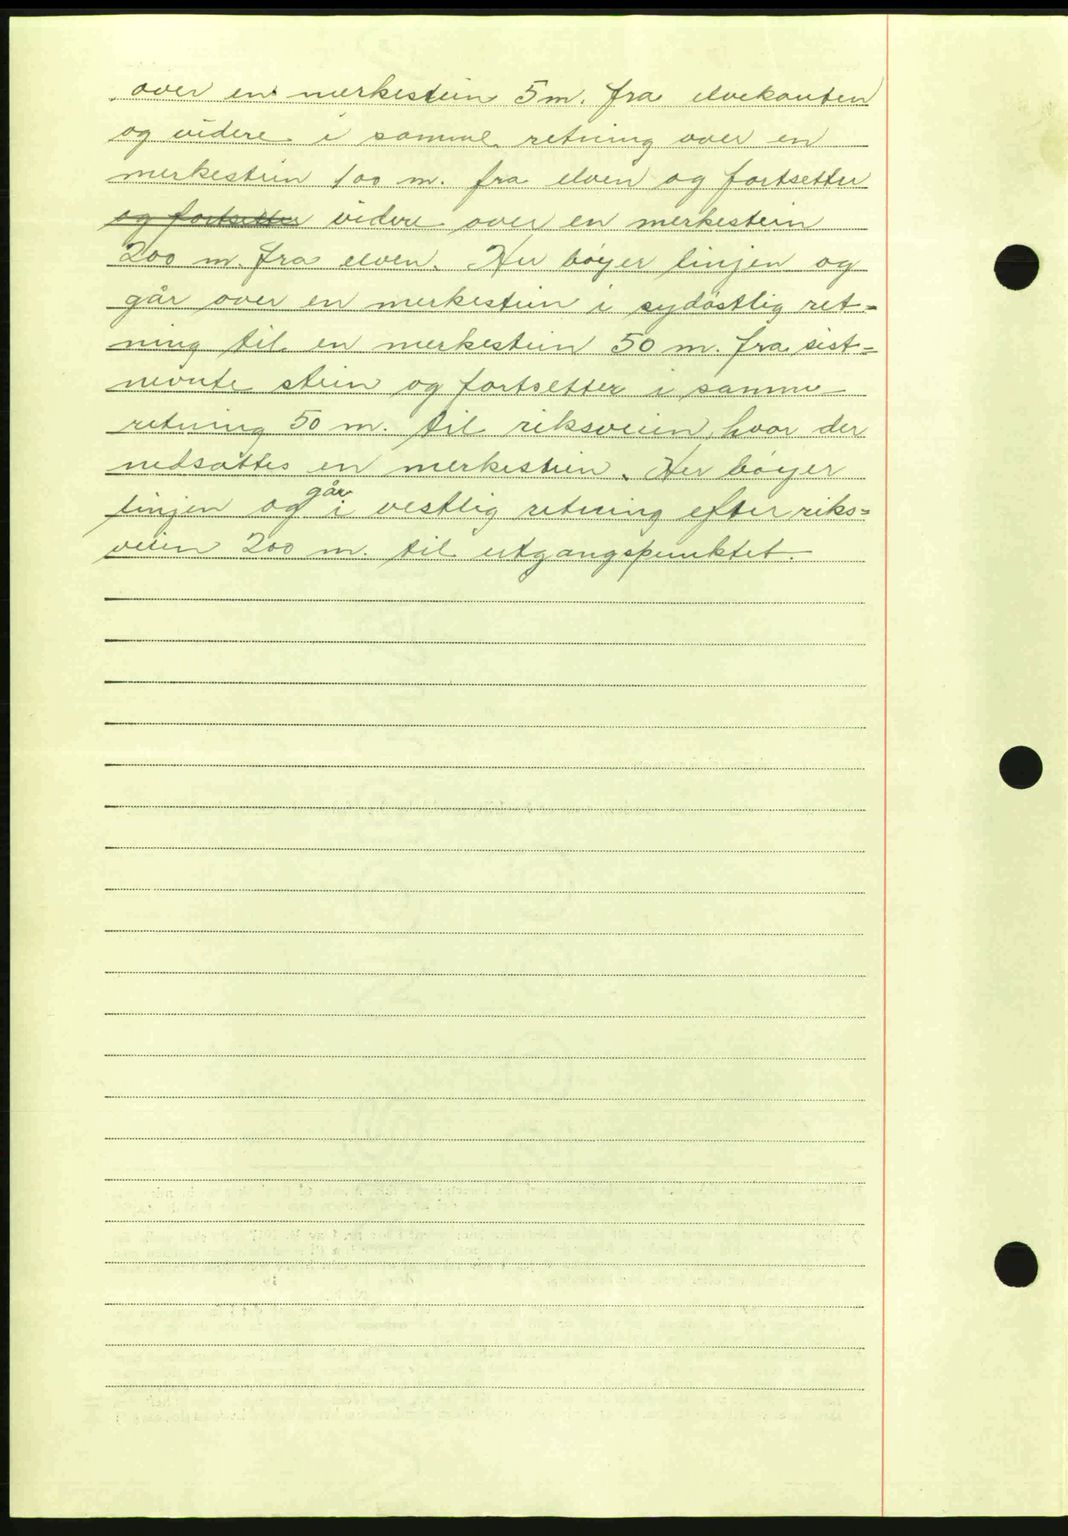 over en merkestein 5 m. fra elvekanten
og videre i samme retning over en
merkestein 100 m. fra elven og fortsetter
og fortsetter videre over en merkestein
200 m. fra elven. Her bøyer linjen og
går over en merkestein i sydøstlig ret=
ning til en merkestein 50 m. fra sist=
nevnte stein og fortsetter i samme
retning 50 m. til riksveien, hvor der
nedsattes en merkestein. Her bøyer
linjen og går i vestlig retning efter riks=
veien 200 m. til utgangspunktet.